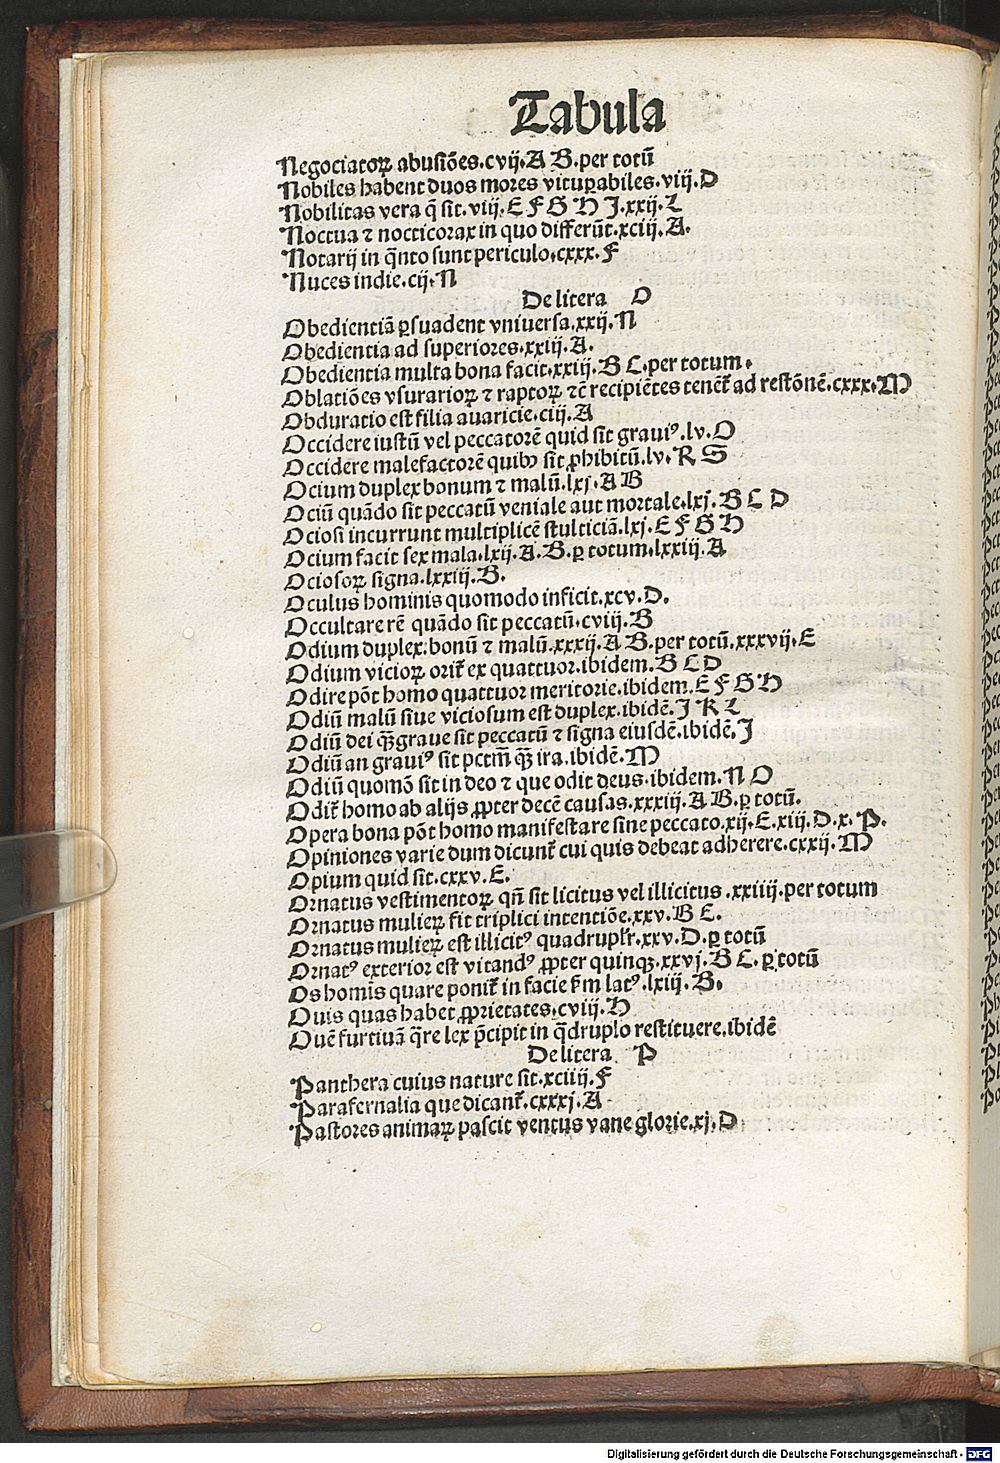 Tabula
Negociatoꝝ abusiões.cvij.A B.per totũ
Nobiles habent duos mores vituꝑabiles.viij.D
Nobilitas vera q̃ sit.viij.E F G H J.xxij.L
Noctua ⁊ nocticorax in quo differũt.xciij.A.
Notarij in q̃nto sunt periculo.cxxx.F
Nuces indie.cij.N
De litera O
Obedientiã ꝑsuadent vniuersa.xxij.N
Obedientia ad superiores.xxiij.A.
Obedientia multa bona facit.xxiij.B C.per totum.
Oblatiões vsurarioꝝ ⁊ raptoꝝ ⁊c̃ recipiẽtes tenent̃ ad restõnẽ.cxxx.M
Obduratio est filia auaricie.ciij.A
Occidere iustũ vel peccatorẽ quid sit grauiꝰ.lv.O
Occidere malefactorẽ quibꝫ sit ꝓhibitũ.lv.R S
Ocium duplex bonum ⁊ malũ.lxj.A B
Ociũ quãdo sit peccatũ veniale aut mortale.lxj.B C D
Ociosi incurrunt multiplicẽ stulticiã.lxj.E F G H
Ocium facit sex mala.lxij.A.B.ꝑ totum.lxxiij.A
Ociosoꝝ signa.lxxiij.B.
Oculus hominis quomodo inficit.xcv.D.
Occultare rẽ quãdo sit peccatũ.cviij.B
Odium duplex:bonũ ⁊ malũ.xxxij.A B.per totũ.xxxvij.E
Odium vicioꝝ orit̃ ex quattuor.ibidem.B C D
Odire põt homo quattuor meritorie.ibidem.E F G H
Odiũ malũ siue viciosum est duplex.ibidẽ.J K L
Odiũ dei q̃ꝫ graue sit peccatũ ⁊ signa eiusdẽ.ibidẽ.J
Odiũ an grauiꝰ sit pctm̃ q̃ꝫ ira.ibidẽ.M
Odiũ quomõ sit in deo ⁊ que odit deus.ibidem.N O
Odit̃ homo ab alijs ꝓpter decẽ causas.xxxiij.A B.ꝑ totũ.
Opera bona põt homo manifestare sine peccato.xij.E.xiij.D.x.P.
Opiniones varie dum dicunt̃ cui quis debeat adherere.cxxij.M
Opium quid sit.cxxv.E.
Ornatus vestimentoꝝ qñ sit licitus vel illicitus.xxiiij.per totum
Ornatus mulieꝝ fit triplici intentiõe.xxv.B C.
Ornatus mulieꝝ est illicitꝰ quadruplr̃.xxv.D.ꝑ totũ
Ornatꝰ exterior est vitandꝰ ꝓpter quinqꝫ.xxvj.B C.ꝑ totũ
Os homis quare ponit̃ in facie f̃m latꝰ.lxiij.B.
Ouis quas habet ꝓprietates.cviij.H
Ouẽ furtiuã q̃re lex p̃cipit in q̃druplo restituere.ibidẽ
De litera P
Panthera cuius nature sit.xciiij.F
Parafernalia que dicant̃.cxxxj.A
Pastores animaꝝ pascit ventus vane glorie.xj.D
Digitalisierung gefördert durch die Deutsche Forschungsgemeinschaft - DFG